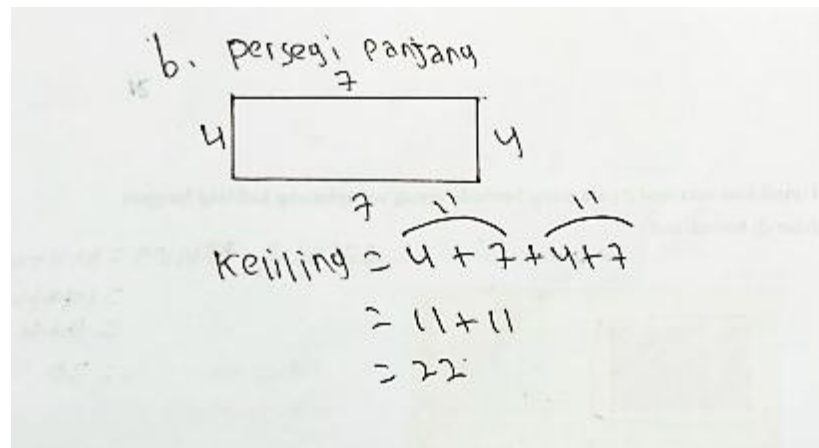 b. persegi panjang
7
4
4
7
11 11
Keliling = 4 + 7 + 4 + 7
= 11 + 11
= 22